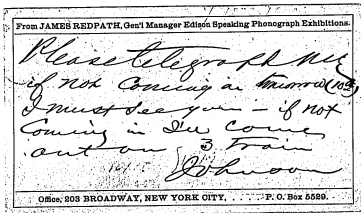 From JAMES REDPATH, Gen'l Manager Edison Speaking Phonograph Exhibitions.
Please telegraph me
if not coming in tomorrow (10th)
I must see you – if not
Coming in I'll come
out on 3 train
Johnson
Office, 203 BROADWAY, NEW YORK CITY, . . . . . P. O. Box 5529.